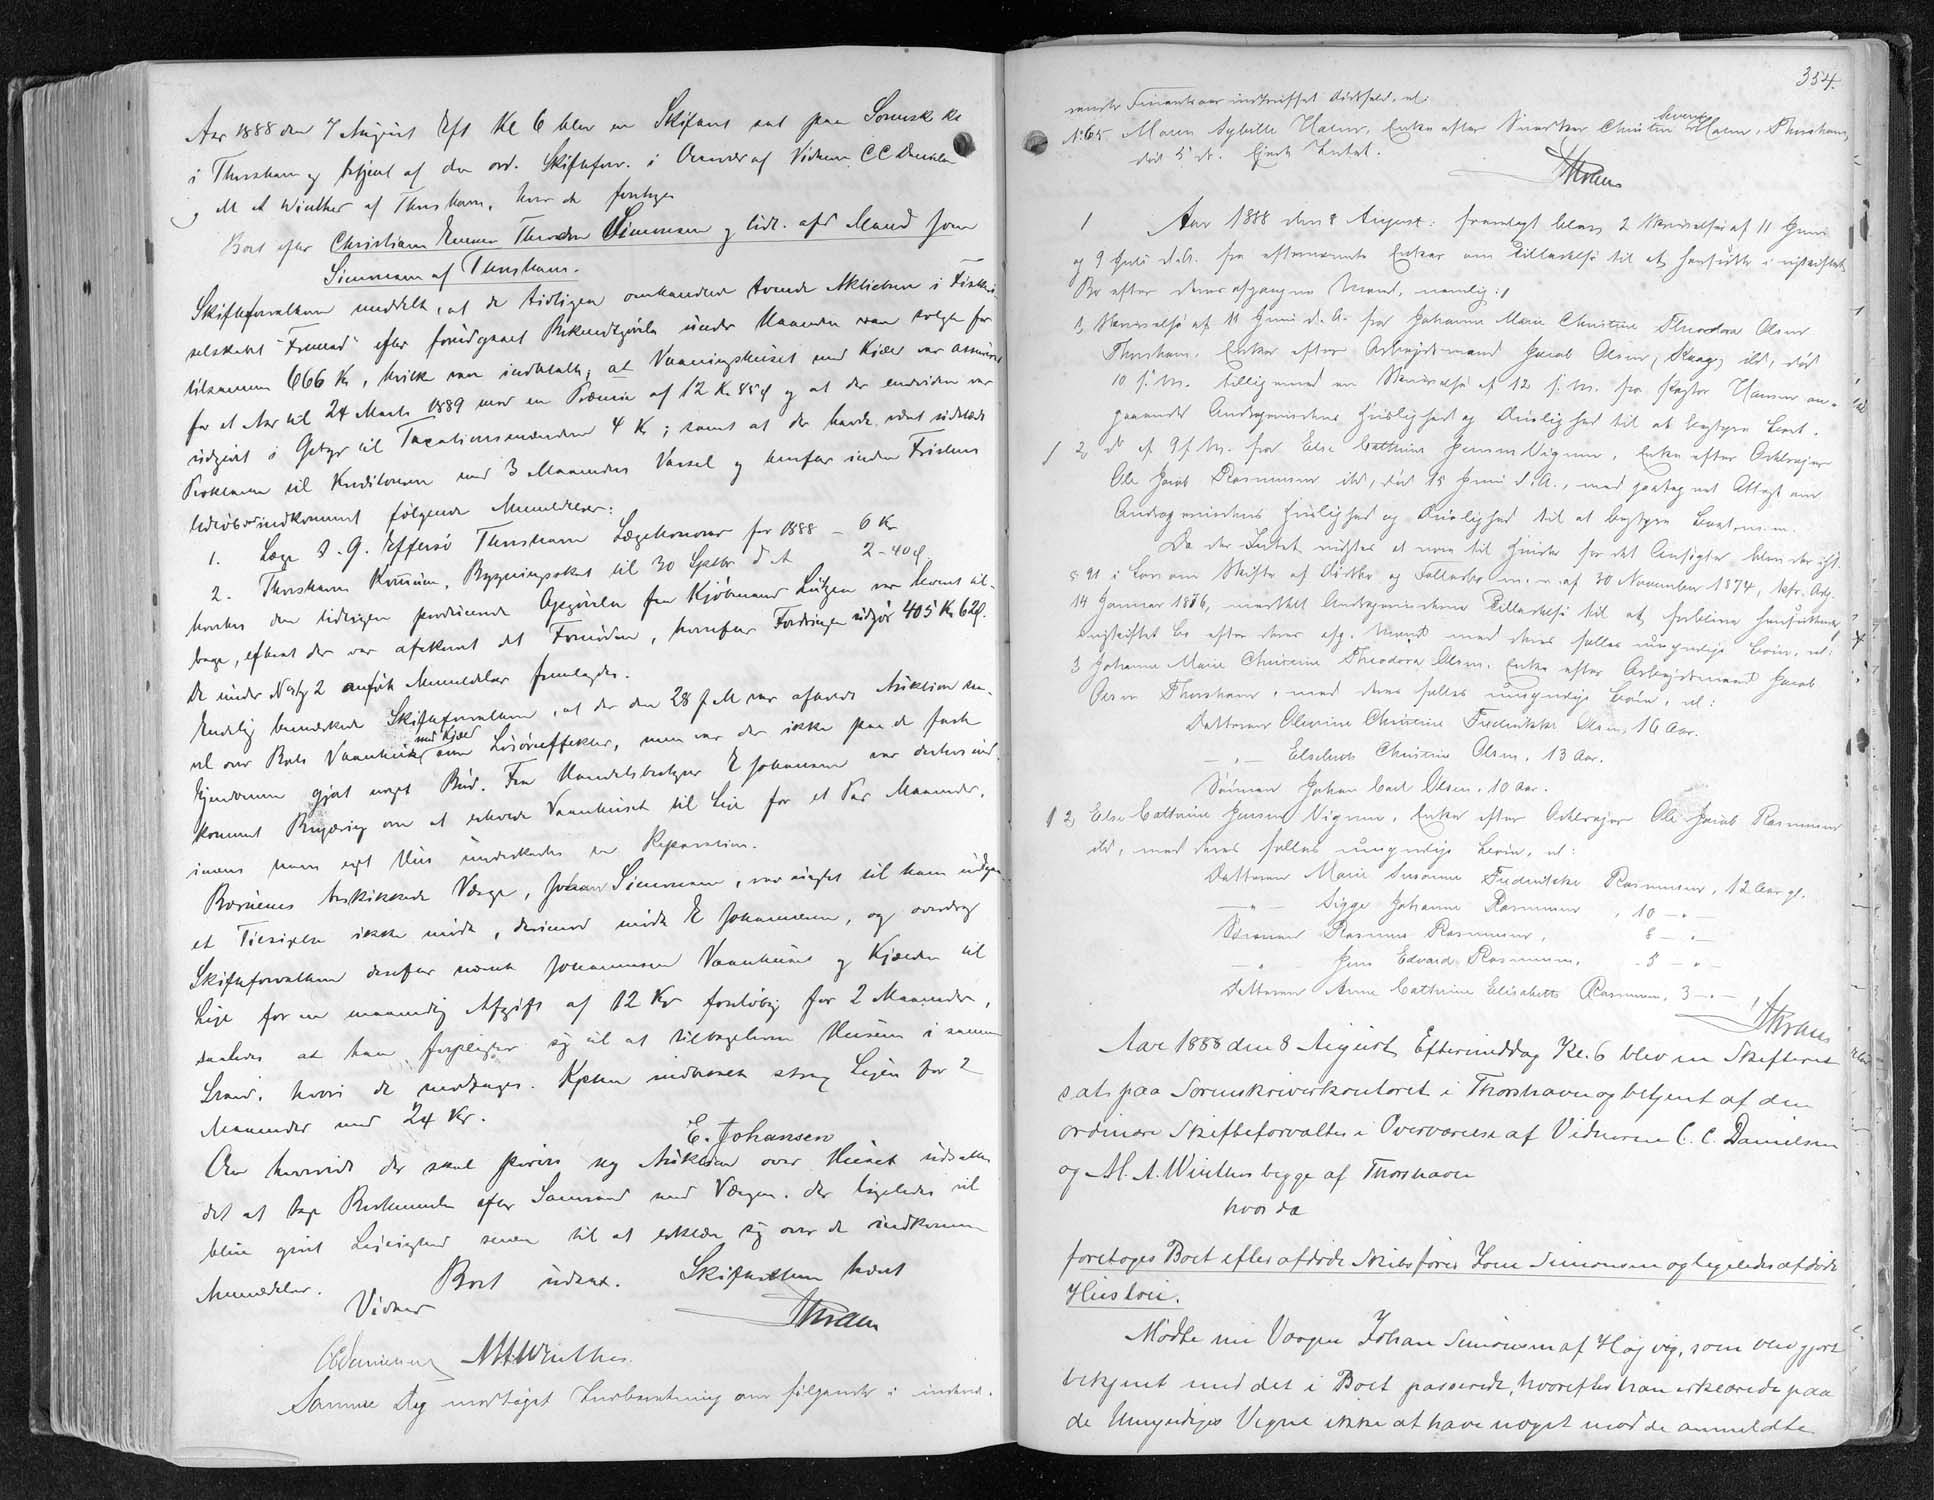 Aar 1888 den 7 August Eft Kl 6 blev en Skifteret sat paa Sorenskr kr
i Thorshavn og betjent af den ord. Skifteforv. i Overvær af Vidnerne CC Danielsen
og M A Winther af Thorshavn, hvor da foretoges
Boet efter Christiane Emma Theodora Simonsen og tidl. afd Mand Jons
Simonsen af Thorshavn.
Skifteforvalteren meddelte, at de tidligere omhandlede tvende Aktiebreve i Fiskeri-
selskabet "Fremad" efter forudgaaet Bekendtgjørelse under Haanden vare solgte for
tilsammen 666 Kr, hvilke vare indbetalte; at Vaaningshuset med Kjæld var assureret
for et Aar til 24 Marts 1889 mod en Præmie af 12 K 85 Ø og at der endvidere var
udgivet i Gebyr til Taxationsmændene 4 Kr; samt at der havde været udstedt
Proklama til Kreditorerne med 3 Maaneders Varsel og herefter inden Fristens
Udløb var indkommet følgende Anmeldelser:
1. Læge S. G. Effersø Thorshavn Lægehonorar for 1888 – 6 Kr
2. Thorshavns Kommune, Bygningsskat til 30 Septbr d A 2 – 40 Ø.
hvorhos den tidligere producerede Opgjørelse fra Kjøbmand Lützen var leveret til-
bage, efterat der var afskrevet det Fornødne, hvorefter Fordringen udgjør 405 Kr 62 Ø.
De under No 1 og 2 anførte Anmeldelser fremlagdes.
Endelig bemærkede Skifteforvalteren, at der den 28 f. M var afholdt Auktion saa-
vel over Boets Vaanhuset med Kjæld som Løsøreeffekter, men var der ikke paa de faste
Ejendomme gjort noget Bud. Fra Handelsbestyrer E Johansen var derhos ind-
kommet Begæring om at erholde Vaanhuset til Leje for et Par Maaneder,
imens hans eget Hus underkastes en Reparation.
Børnenes beskikkede Værge, Johan Simonsen, var uagtet til ham udgaa-
et Tilsigelse ikke mødt, derimod mødte E Johannesen, og overdrog
Skifteforvalteren derefter nævnte Johannesen Vaanhuset og Kjælder til
Leje for en maanedlig Afgift af 12 Kr foreløbig for 2 Maaneder,
saaledes at han forpligter sig til at tilbagelevere Husene i samme
Stand, hvori de modtages. Kptn indbetalte strax Lejen for 2
Maaneder med 24 Kr.
E. Johansen
Om hvorvidt der skal prøves ny Auktion over Huset udsattes
det at tage Bestemmelse efter Samraad med Værgen, der ligeledes vil
blive givet Lejlighed senere til at erklære sig over de indkomne
Anmeldelser.
Boet udsat. Skifteretten hævet
Vidner
Thran
CCDanielsen MAWinther.
Samme Dag modtaget Indberetning om følgende i indev.
354.
rende Finantsaar indtruffet Dødsfald, nl:
No 65 Maren Sybille Hamer, Enke efter Snedker Christen Severin Hamer, Thorshavn,
død 5 ds. Ejede Intet.
Thran
1 Aar 1888 den 8 August: fremlagt blev 2 Skrivelser af 11 Juni
og 9 Juli d.A. fra efternævnte Enker om Tilladelse til at hensidde i uskiftet
Bo efter deres afgangne Mænd, nemlig:
1, Skrivelse af 11 Juni d. A. fra Johanne Marie Christine Theodora Olsen
Thorshavn, Enke efter Arbejdsmand Jacob Olsen, ibd, død
10 f. M. tilligemed en Skrivelse af 12 f. M. fra Pastor Hansen an-
gaaende Andragerindens Huslighed og Duelighed til at bestyre Boet.
1 2, do af 9 f. M. fra Else Cathrine Jensen Vigum, Enke efter
Ole Jacob Rasmussen ibd, død 15 Juni d.A., med paategnet Attest om
Andragerindens Huslighed og Duelighed til at bestyre Boet m.m.
Da der Intet vidstes at være til Hinder for det Ansøgte blev der iflg.
§ 91 i Lov om Skifte af Dødsbo og Fællesbo m. v. af 30 November 1874, kfr. Ang.
14 Januar 1876, meddelt Andragerinderne Tilladelse til at forblive hensiddende
i uskiftet Bo efter deres afg. Mænd med deres fælles umyndige Børn, nl:
3 Johanne Marie Christine Theodora Olsen, Enke efter Arbejdsmand Jacob
Olsen Thorshavn, med deres fælles umyndige Børn, nl:
Datteren Olevine Christine Frederikke Olsen, 16 Aar.
– " – Elsebeth Christine Olsen, 13 Aar.
Sønnen Johan Carl Olsen, 10 Aar.
1 2, Else Cathrine Jensen Vigum, Enke efter Ole Jacob Rasmussen
ibd, med deres fælles umyndige Børn, nl:
Datteren Marie Susanne Frederikke Rasmussen, 12 Aar gl.
– " – Sigga Johanne Rasmussen, 10 – " –
Sønnen Rasmus Rasmussen, 8 – " –
– " – Jens Edvard Rasmussen, 5 – " –
Datteren Anne Cathrine Elisabeth Rasmussen, 3 – " –
Thran
Aar 1888 den 8 August Eftermiddag Kl. 6 blev en Skifteret
sat paa Sorenskriverkontoret i Thorshavn og betjent af den
ordinære Skifteforvalter i Overværelse af Vidnerne C. C. Danielsen
og M. A. Winther begge af Thorshavn
hvor da
foretoges Boet efter afdøde Skibsfører Jone Simonsen og ligeledes afdøde
Hustru.
Mødte nu Værgen Johan Simonsen af Hojvig, som blev gjort
bekjent med det i Boet passerede, hvorefter han erklærede paa
de Umyndiges Vegne ikke at have noget mod de anmeldte